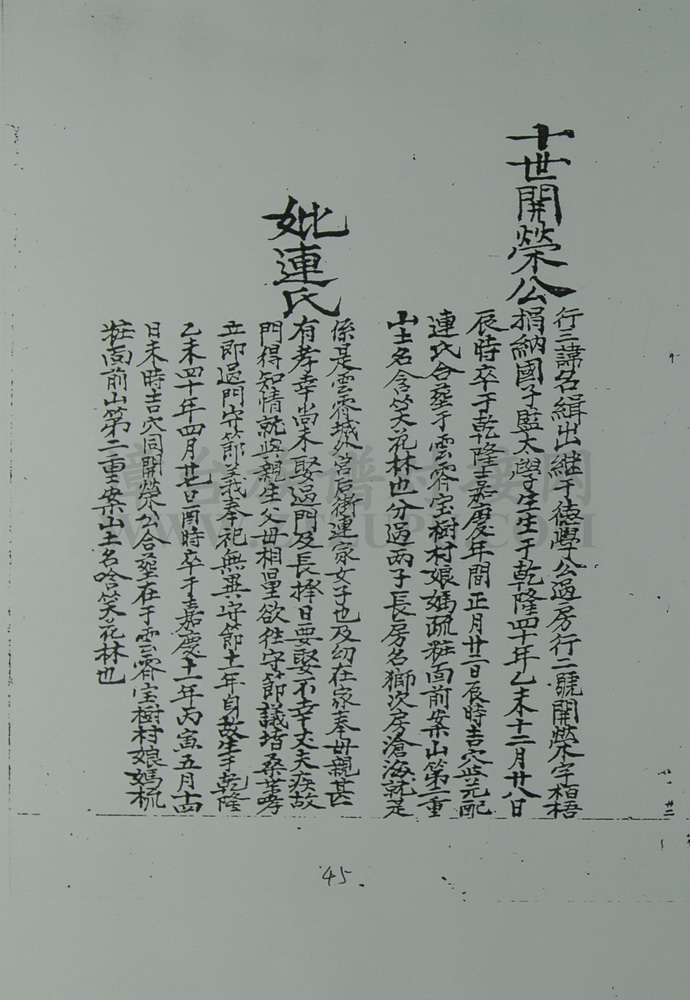 十世開榮公
行三諱名緝出継于德學公過房行二號開榮字栢梧
捐納國子監太學生生于乾隆四十年乙未十二月廿八日
辰時卒于乾隆嘉慶年間正月廿二日辰時吉穴與元配
連氏合塟于雲霄宝樹村娘媽疏粧面前案山第二重
山土名含笑花林也分過兩子長房名獅次房滄海就是
妣連氏
係是雲霄城外营后街連家女子也及幼在家奉母親甚
有孝幸尚未娶過門及長擇日要娶不幸丈夫疾故
門得知情就與親生父母相量欲往守節議堵桑
立即過門守節義奉祀無異守節十一年身故生于乾隆
乙未四十年四月廿七日酉時卒于嘉慶十一年丙寅五月十四
日未時吉穴同開榮公合塟在于雲霄宝樹村娘媽梳
粧面前山第二重案山土名唅笑花林也
45